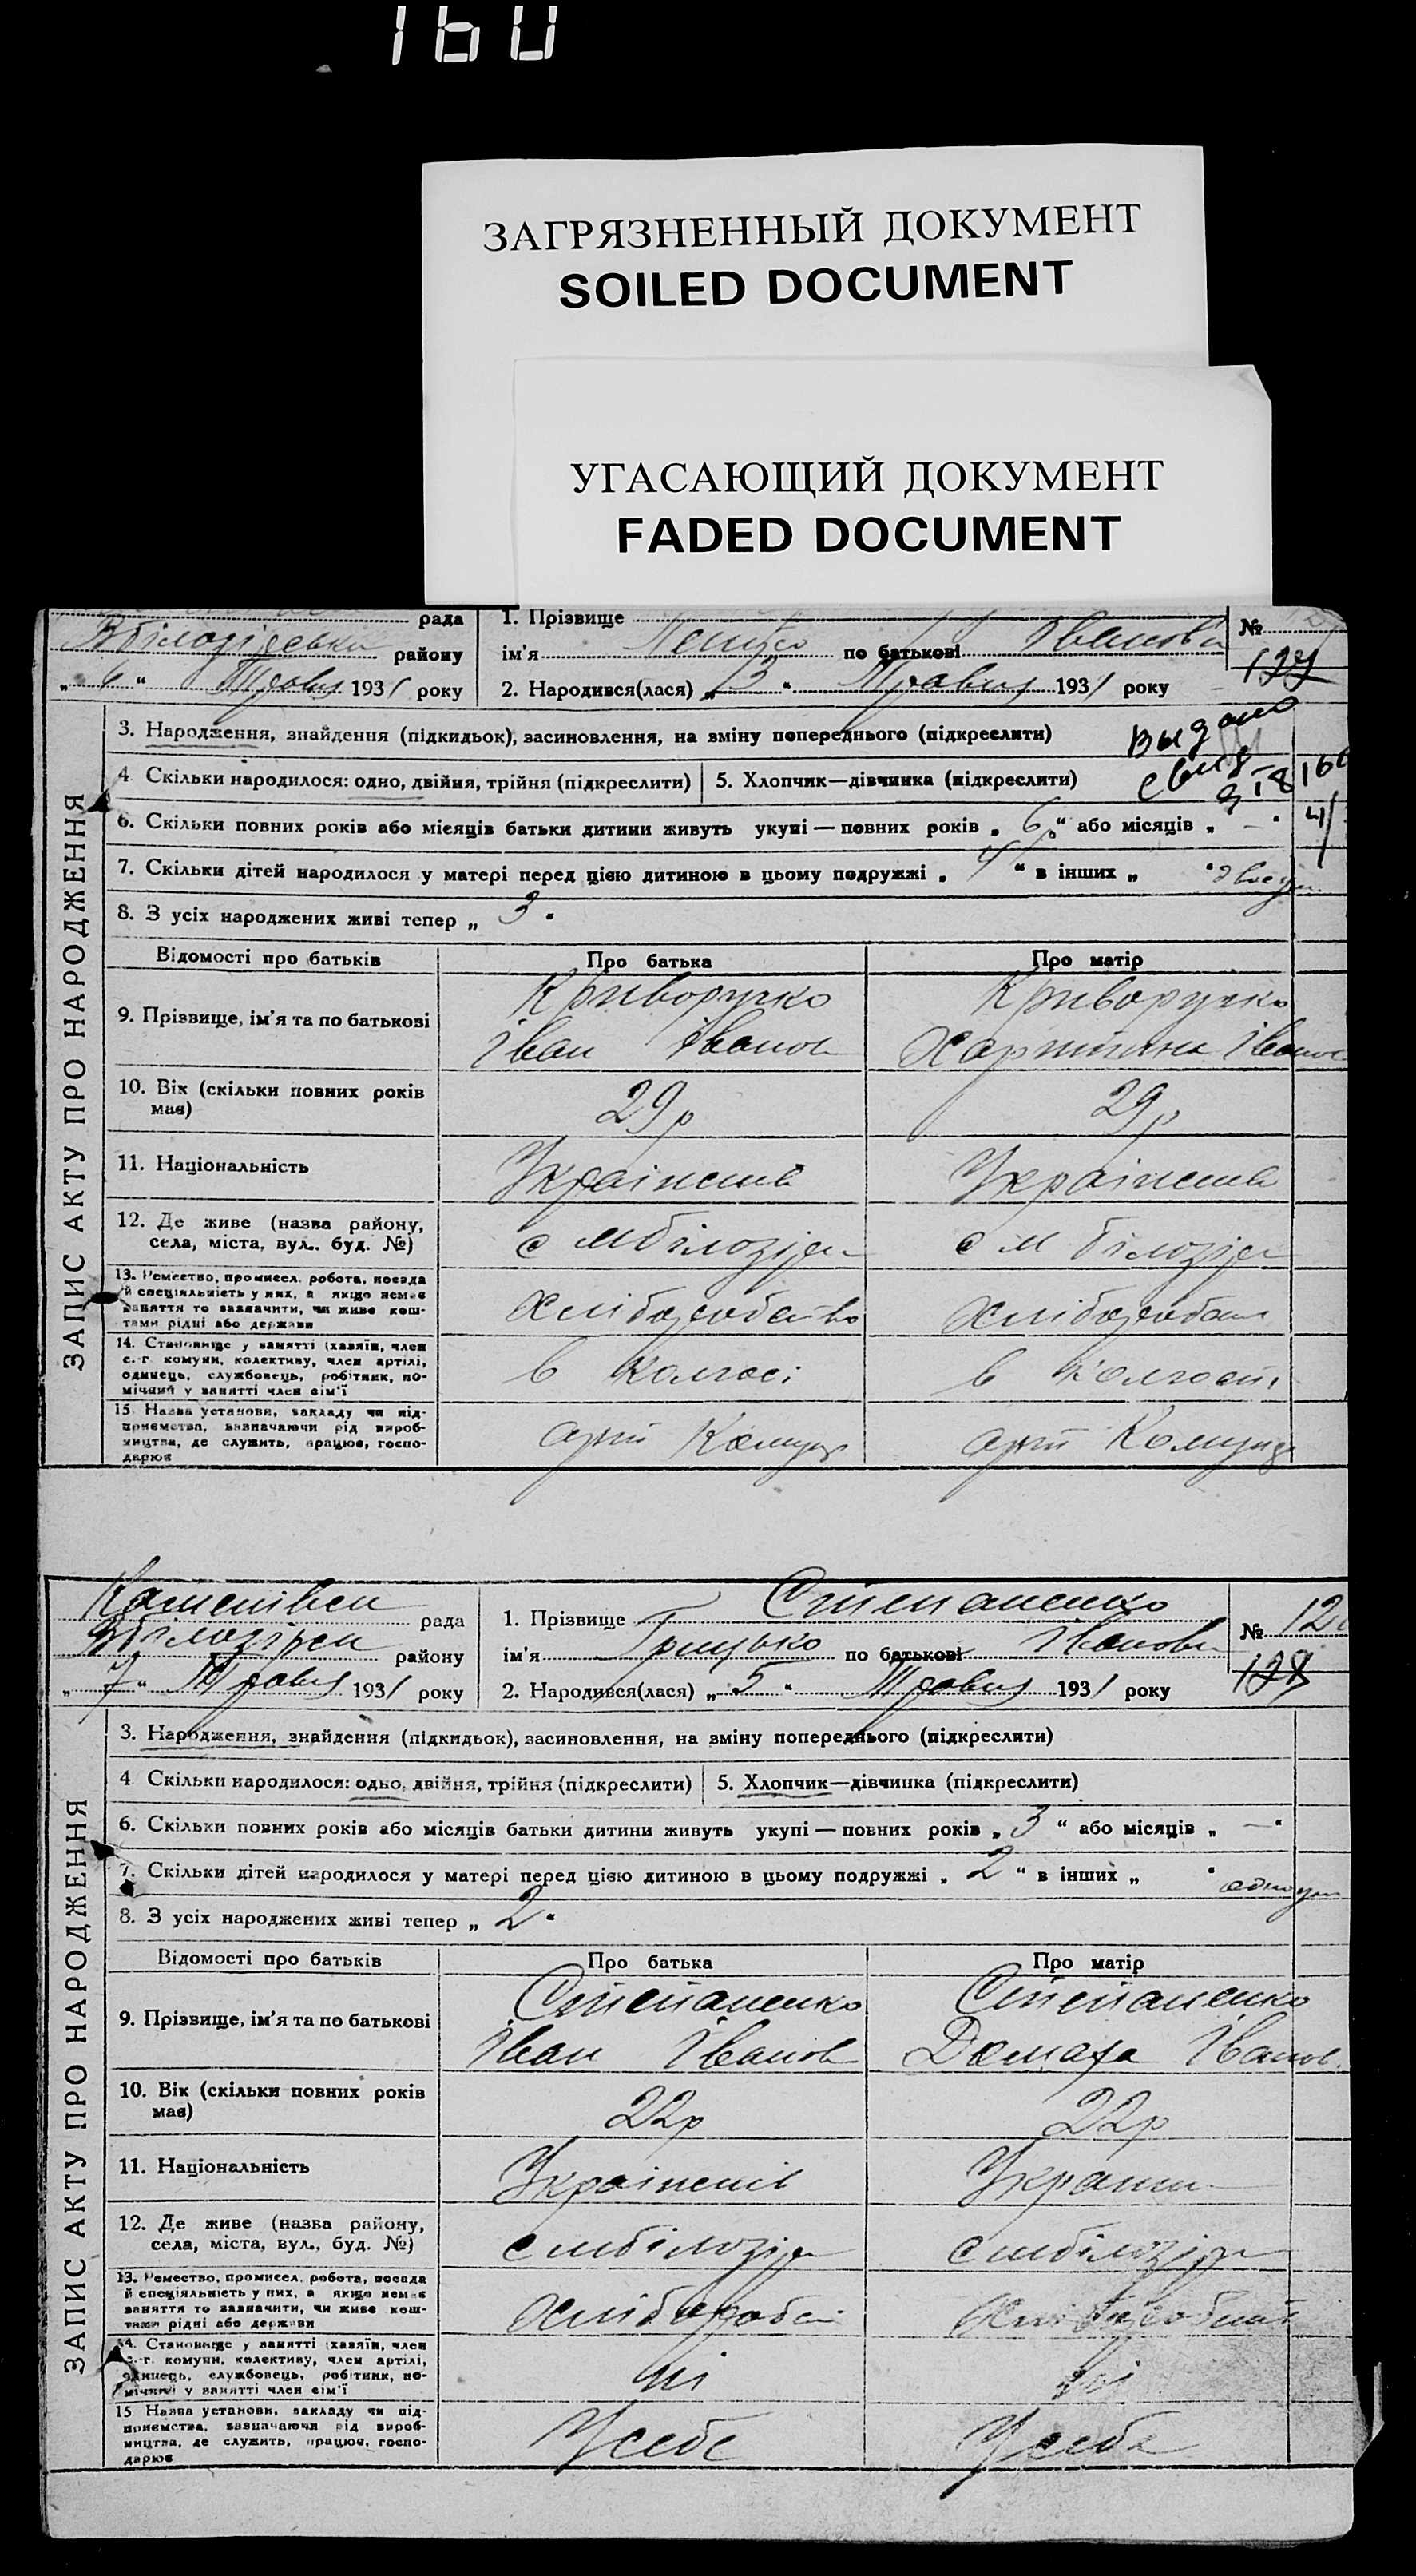 160
ЗАГРЯЗНЕННЫЙ ДОКУМЕНТ
SOILED DOCUMENT
УГАСАЮЩИЙ ДОКУМЕНТ
FADED DOCUMENT
рада
району
„ 6 “ Травня 1931 року
1. Прізвище
ім'я по батькові Іванович
2. Народився(лася) „ 3 “ Травня 1931 року
№
127
ЗАПИС АКТУ ПРО НАРОДЖЕННЯ
3. Народження, знайдення (підкидьок), засиновлення, на зміну попереднього (підкреслити)
Выдано
4 Скільки народилося: одно, двійня, трійня (підкреслити)
5. Хлопчик—дівчинка (підкреслити)
6. Скільки повних років або місяців батьки дитини живуть укупі — повних років „ 6 “ або місяців „ — “
7. Скільки дітей народилося у матері перед цією дитиною в цьому подружжі „ 4 “ в інших „
8. З усіх народжених живі тепер „ 3 “
Відомості про батьків
Про батька
Про матір
9. Прізвище, ім'я та по батькові
Криворучко
Іван Іванов
Криворучко
Харитина Іванов
10. Вік (скільки повних років має)
29 р
29 р
11. Національність
12. Де живе (назва району, села, міста, вул. буд. №)
с м білозір
с м білозір
13. Ремество, промисел. робота, посада й спеціяльність у них, а якщо немає заняття то зазначити, чи живе коштами рідні або держави
14. Становище у занятті (хазяїн, член с.-г. комуни, колективу, член артілі, одинець, службовець, робітник, помічний у занятті член сім'ї
в колгосі
в
15. Назва установи, закладу чи підприємства, зазначаючи рід виробництва, де служить, працює, господарює
арт
арт
рада
району
„ 7 “ Травня 1931 року
1. Прізвище Степаненко
ім'я Грицько по батькові Іванов
2. Народився(лася) „ 5 “ Травня 1931 року
№ 12
128
ЗАПИС АКТУ ПРО НАРОДЖЕННЯ
3. Народження, знайдення (підкидьок), засиновлення, на зміну попереднього (підкреслити)
4 Скільки народилося: одно, двійня, трійня (підкреслити)
5. Хлопчик—дівчинка (підкреслити)
6. Скільки повних років або місяців батьки дитини живуть укупі — повних років „ 3 “ або місяців „ — “
7. Скільки дітей народилося у матері перед цією дитиною в цьому подружжі „ 2 “ в інших „
8. З усіх народжених живі тепер „ 2 “
Відомості про батьків
Про батька
Про матір
9. Прізвище, ім'я та по батькові
Степаненко
Іван Іванов
Степаненко
Домаха Іванов
10. Вік (скільки повних років має)
22 р
22 р
11. Національність
12. Де живе (назва району, села, міста, вул., буд. №)
с м білозір
с м білозір
13. Ремество, промисел. робота, посада й спеціяльність у них, а якщо немає заняття то зазначити, чи живе коштами рідні або держави
14. Становище у занятті (хазяїн, член с.-г. комуни, колективу, член артілі, одинець, службовець, робітник, помічний у занятті член сім'ї
ні
ні
15 Назва установи, закладу чи підприємства, зазначаючи рід виробництва, де служить, працює, господарює
У себе
У себе